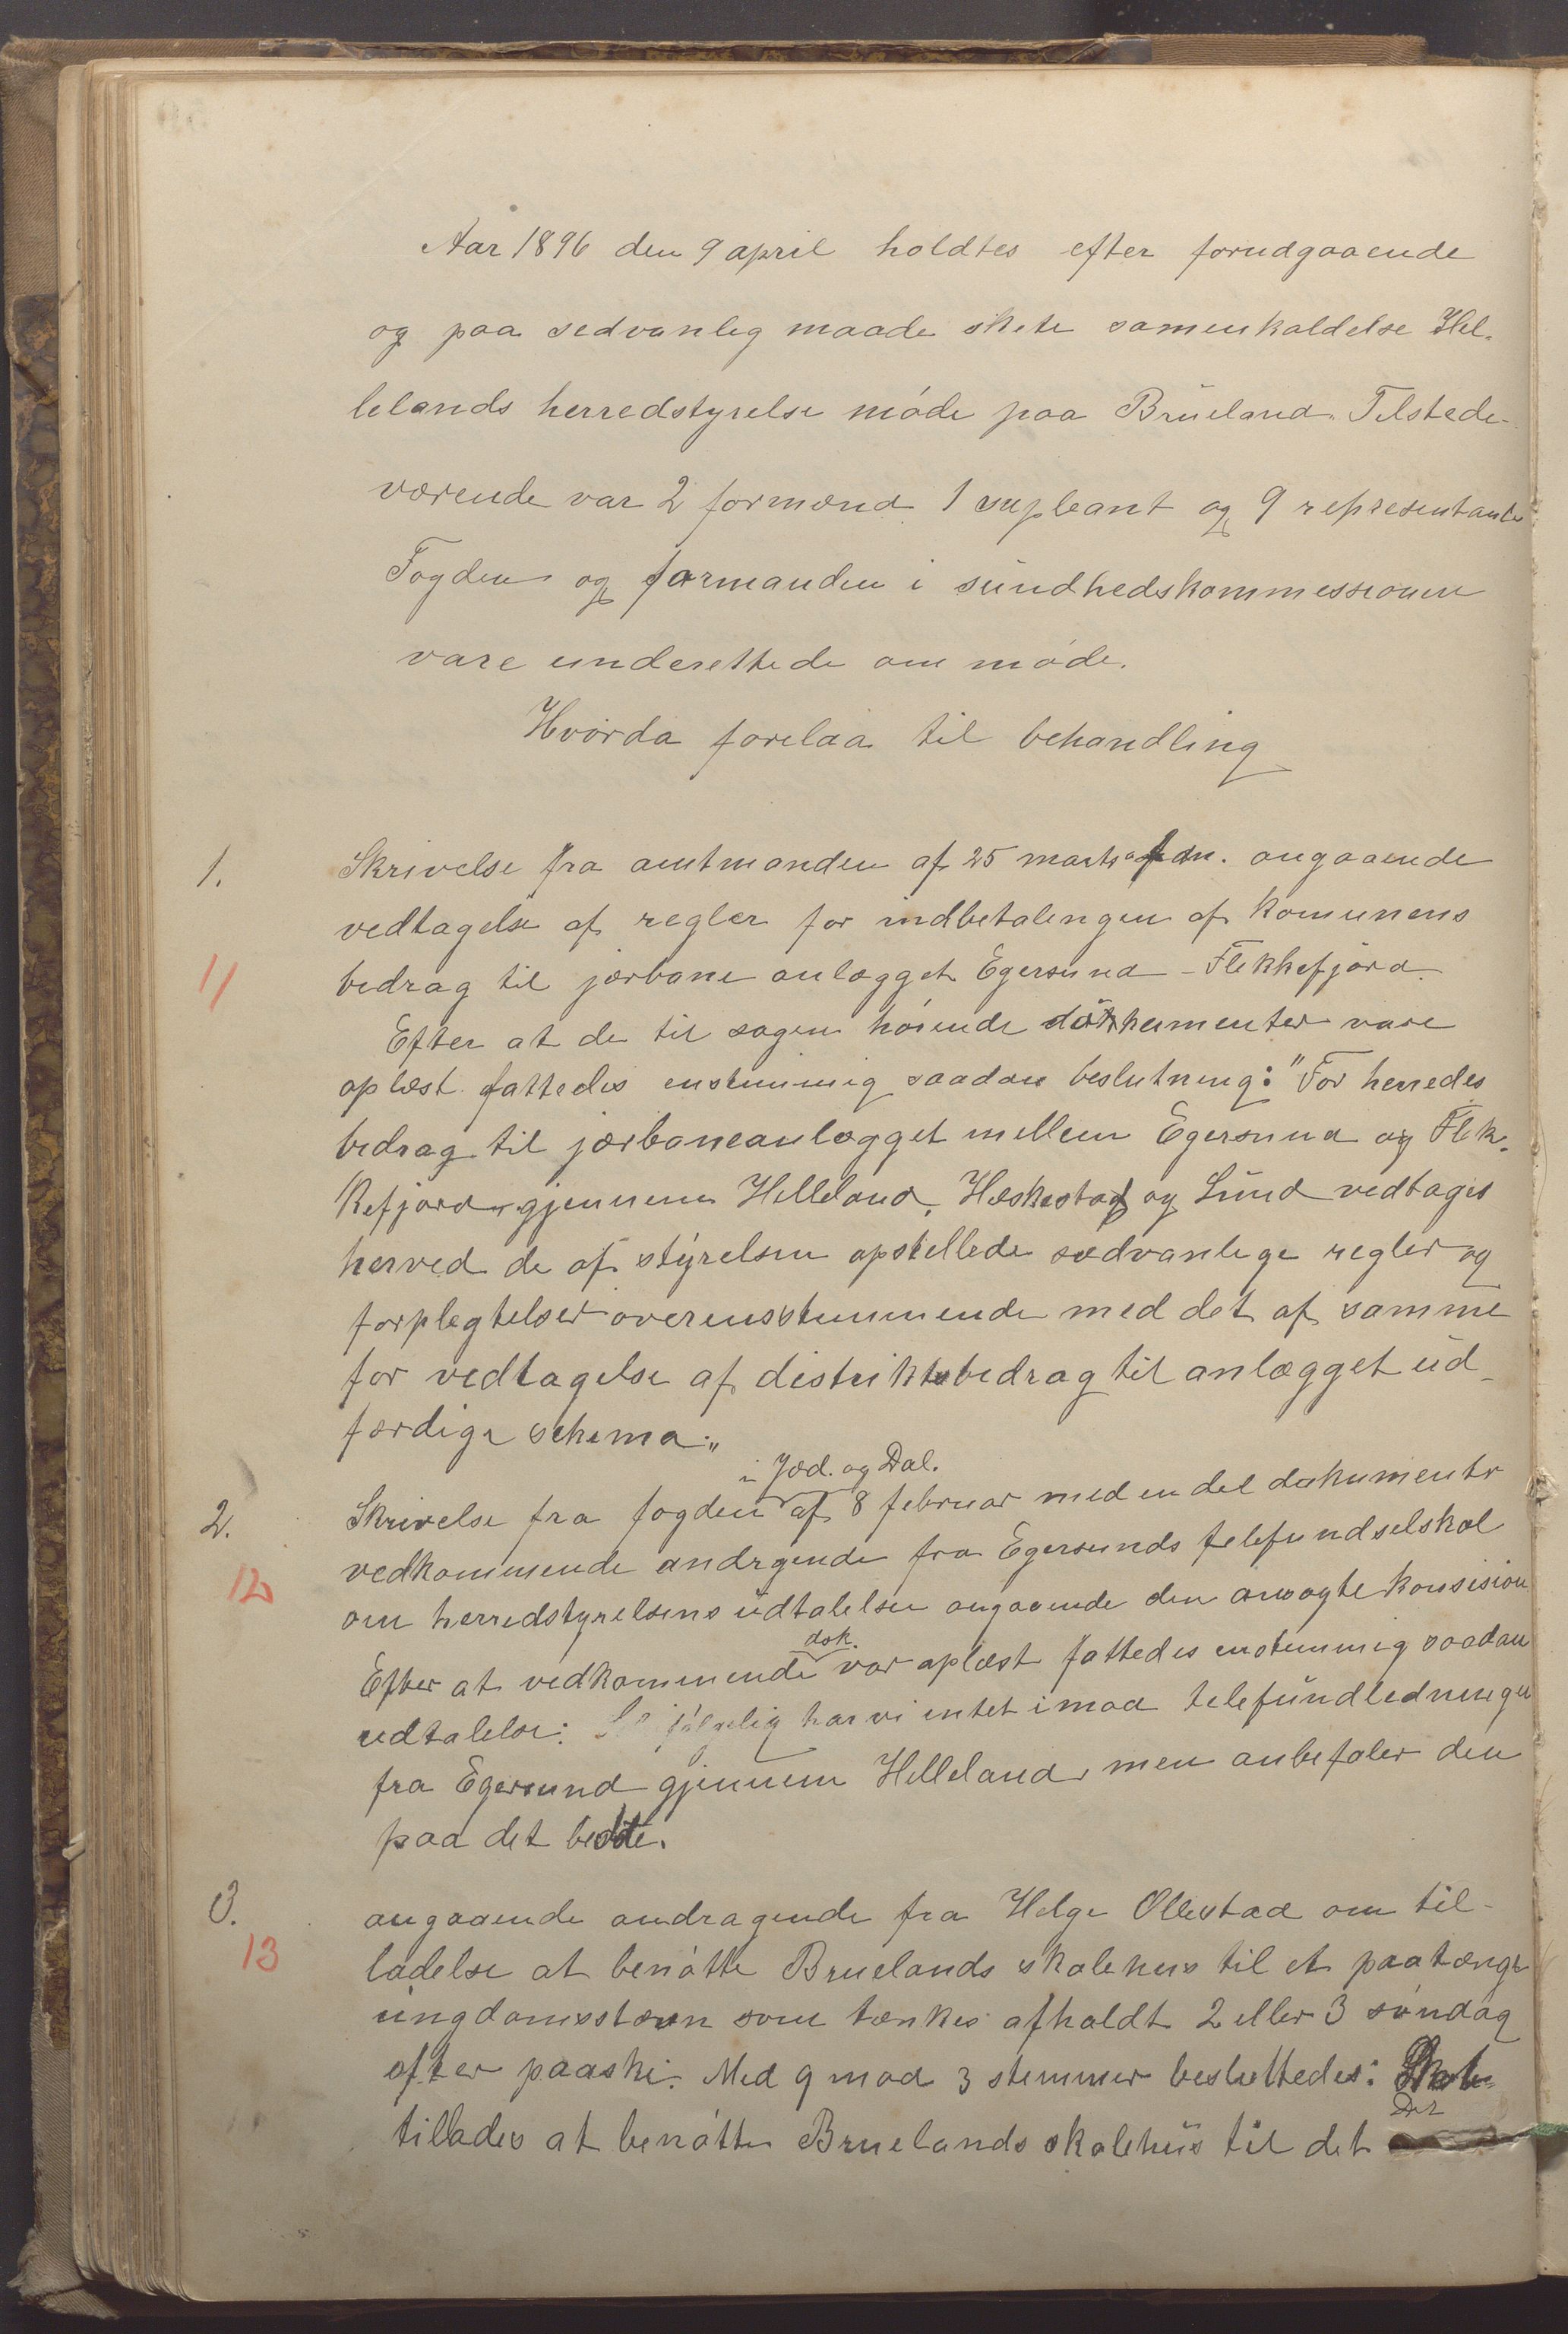 Aar 1896 den 9 april holdtes efter forudgaaende
og paa sedvanlig maade skete samenkaldelse Hel-
lelands herredstyrelse møde paa Brueland. Tilstede-
værende var 2 formænd 1 supleant og 9 representanter
Fogden og formanden i sundhedskommessionen
vare underettede om møde.
Hvorda forelaa til behandling
1. Skrivelse fra amtmanden af 25 marts angaaende
vedtagelse af regler for indbetalingen af komunens
11 bedrag til jærbane anlægget Egersund - Flekkefjord.
Efter at de til sagen hørende dokkumenter vare
oplæst fattedes enstemmig saadan beslutning: "For herredes
bedrag til jærbaneanlægget mellem Egersund og Flek-
kefjord gjennem Helleland, Heskestad og Lund vedtages
herved de af styrelsen opstellede sædvanlige regler og
forplegtelser overensstemmende med det af samme
for vedtagelse af distriktsbedrag til anlægget ud-
færdige schema."
i Jæd. og Dal.
2. Skrivelse fra fogden af 8 februar med en del dokumenter
vedkommende andrgende fra Egersunds telefundselskal
12 om herredstyrelsens udtalelse angaaende den ansøgte konsision
dok.
Efter at vedkommende var oplæst fattedes enstemmig saadan
udtalelse: har vi intet imod telefundledningen
fra Egersund gjennem Helleland, men anbefaler den
paa det bedste.
3. angaaende andragende fra Helge Ollestad om til-
13 ladelse at benøtte Bruelands skolehus til et paatængt
ungdomsstævn som tænkes afholdt 2 eller 3 søndag
efter paaske. Med 9 mod 3 stemmer besluttedes:
Det
tillades at benøtte Bruelands skolehus til det